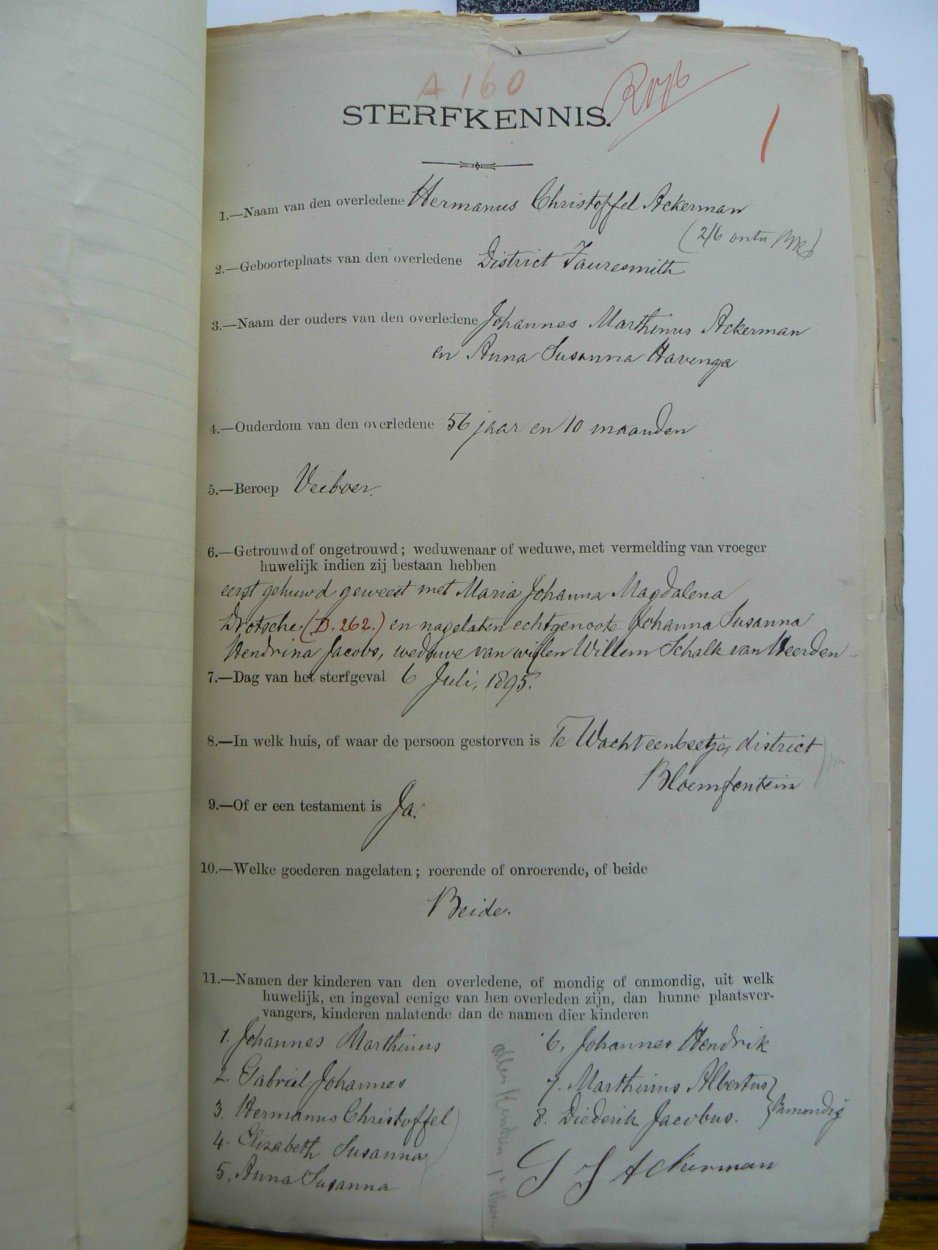 A 160
STERFKENNIS.
1.—Naam van den overledene Hermanus Christoffel Ackerman
2.—Geboorteplaats van den overledene District Fauresmith
3.—Naam der ouders van den overledene Johannes Marthinus Ackerman
en Anna Susanna Havenga
4.—Ouderdom van den overledene 56 jaar en 10 maanden
5.—Beroep Veeboer.
6.—Getrouwd of ongetrouwd; weduwenaar of weduwe, met vermelding van vroeger
huwelijk indien zij bestaan hebben
eerst gehuwd geweest met Maria Johanna Magdalena
Drotsche (D. 262.) en nagelaten echtgenoote Johanna Susanna
Hendrina Jacobs, weduwe van wijlen Willem Schalk van Heerden
7.—Dag van het sterfgeval 6 Juli, 1895.
8.—In welk huis, of waar de persoon gestorven is Te Wachteenbeetje, district
Bloemfontein
9.—Of er een testament is Ja.
10.—Welke goederen nagelaten; roerende of onroerende, of beide
Beide.
11.—Namen der kinderen van den overledene, of mondig of onmondig, uit welk
huwelijk, en ingeval eenige van hen overleden zijn, dan hunne plaatsver-
vangers, kinderen nalatende dan de namen dier kinderen
1. Johannes Marthinus
2. Gabriel Johannes
3. Hermanus Christoffel
4. Elizabeth Susanna
5. Anna Susanna
6. Johannes Hendrik
7. Marthinus Albertus
8. Diederik Jacobus. } onmondig
G J Ackerman